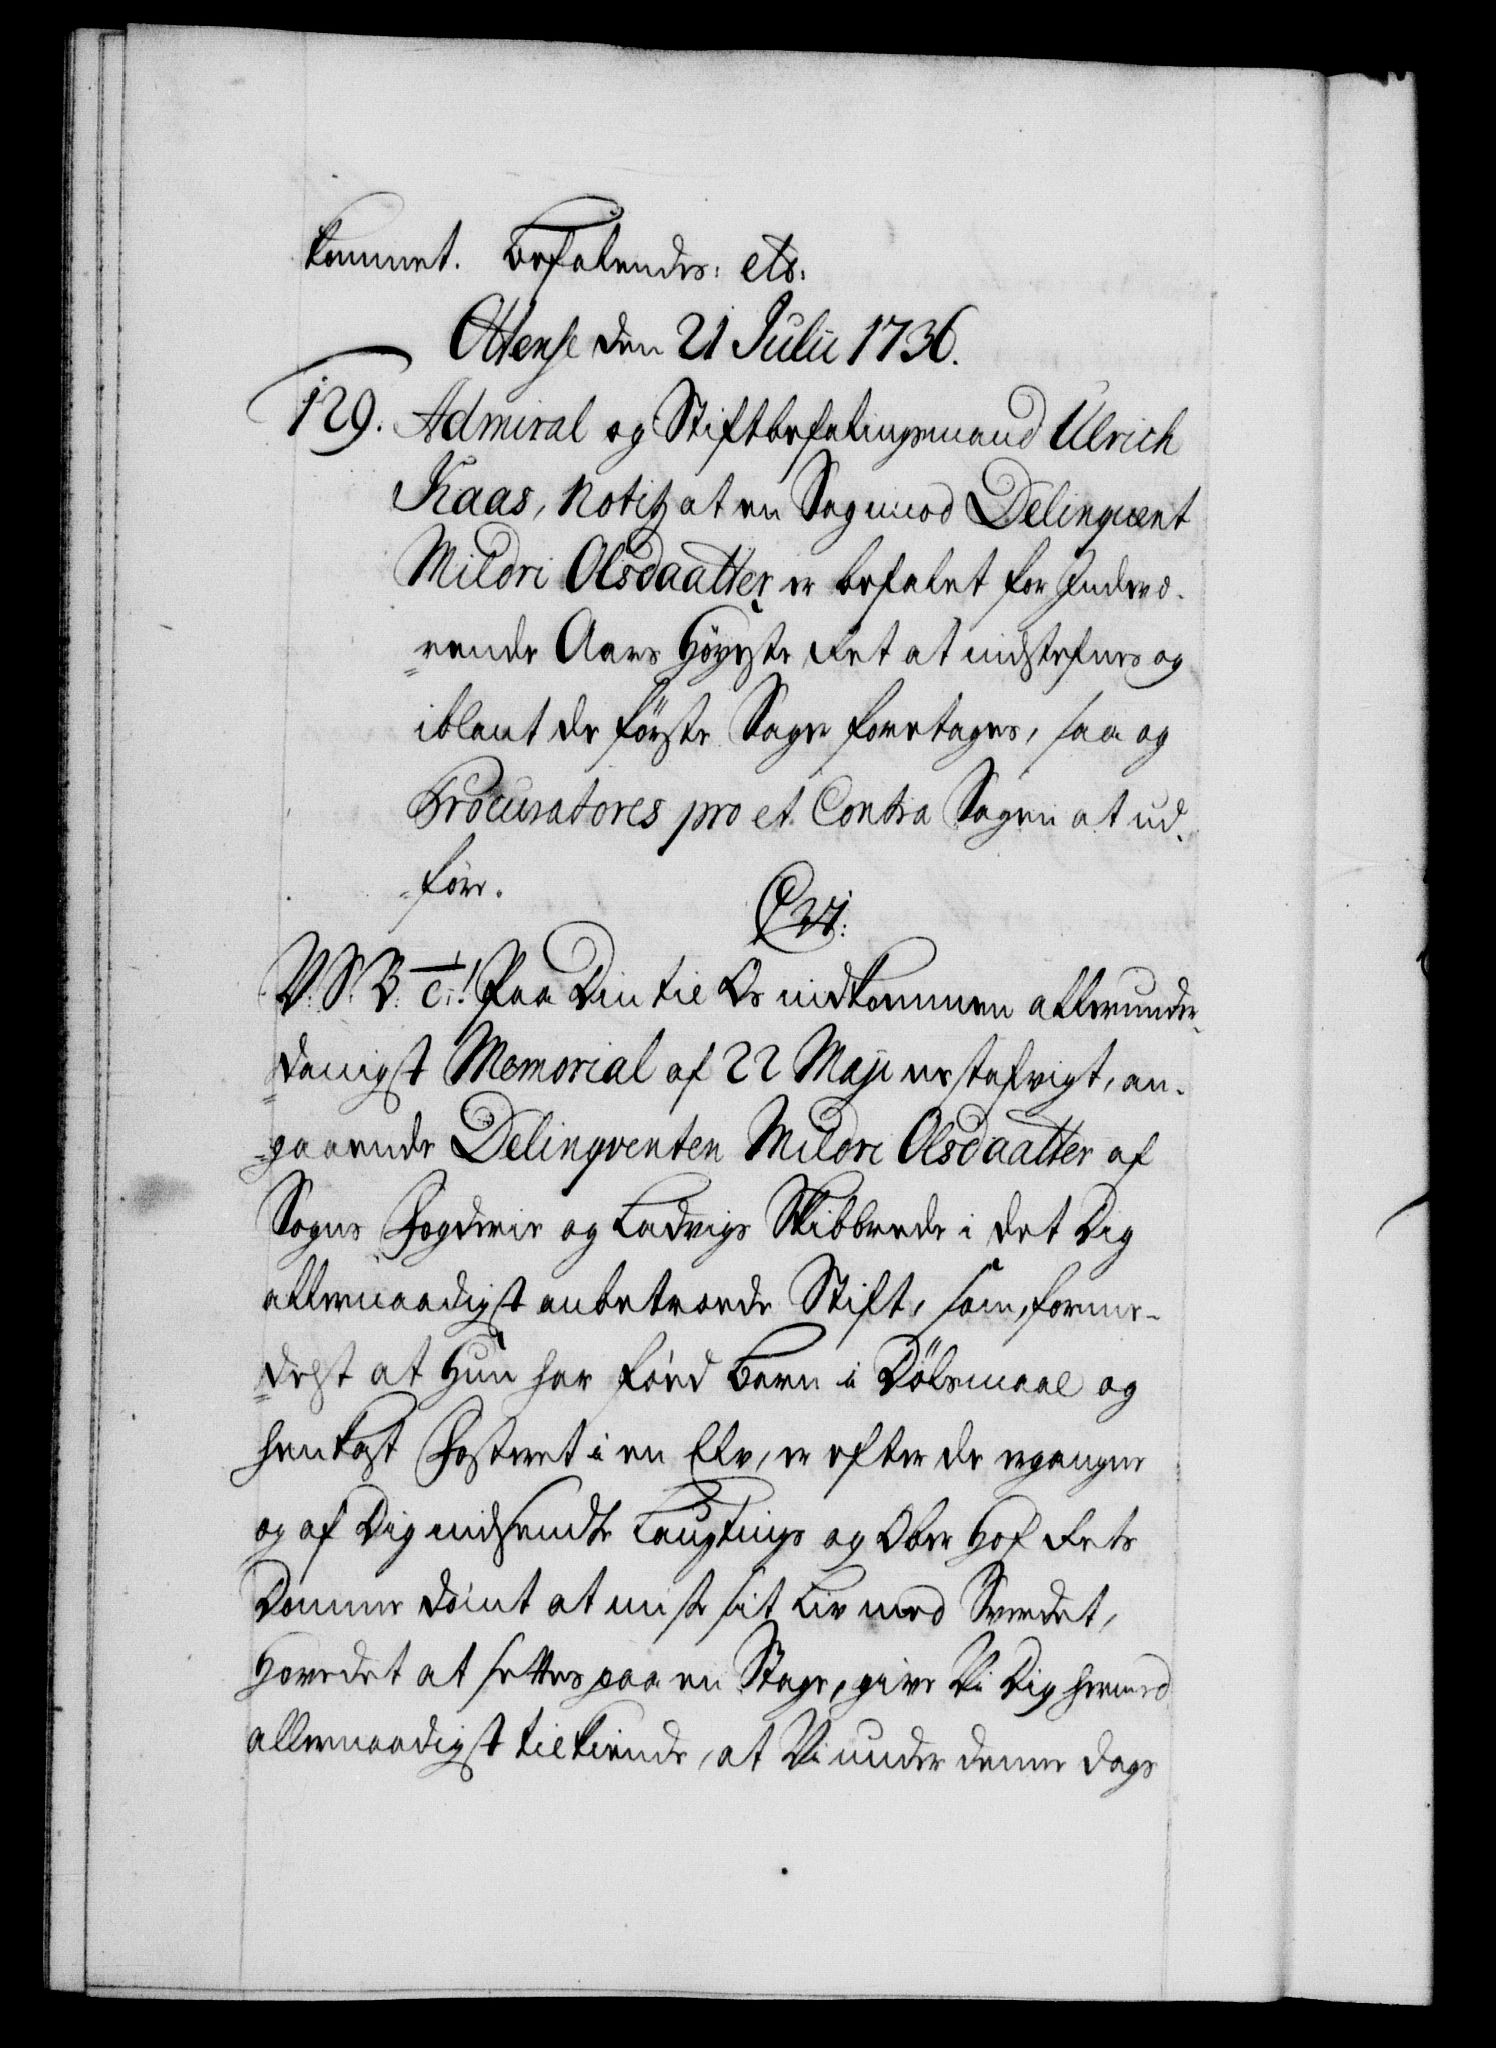 kommet. Befalendes: etc:
Ottense den 21 Julii 1736.
129. Admiral og Stiftbefalingsmand Ulrich
Kaas, Notitz at en Sag mod Delinqvent
Mildri Olsdaatter er befalet for Indevæ-
rende Aars Høyeste Ret at indstefnes og
iblant de første Sager foretages, saa og
Procuratores pro et Contra Sagen at ud-
føre.
C 6ti:
V. S. B. C:! Paa Din til Os indkommen allerunder-
danigst Memorial af 22 Maji nestafvigt, an-
gaaende Delinqventen Mildri Olsdaatter af
Sogns Fogderie og Ladvigs Skibbrede i det Dig
allernaadigst anbetroede Stift, som, forme-
delst at Hun har fød Barn i Dølsmaal og
henkast Fosteret i en Elv, er efter de ergangne
og af Dig indsendte Laugtings og Ober Hof Rets
Domme dømt at miste sit Liv med Sverdet,
Hovedet at settes paa en Stage, give Vi Dig hermed
allernaadigst tilkiende, at Vi under denne Dags